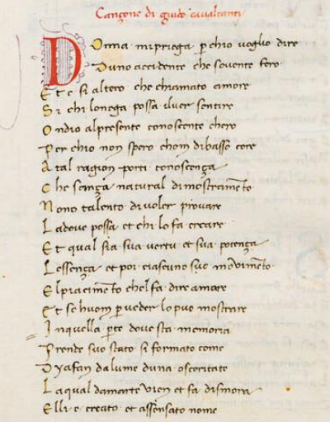 Cançone di guido cavalcanti
Donna mi priega p chio voglio dire
Duno accidente che sovente fero
Et e si altero che chiamato amore
Si chi lonega possa il ver sentire
Ondio al presente conoscente chero
Per chio non spero chom di basso core
A tal ragion porti conoscença
Che sança natural dimostramēto
Nono talento di voler provare
Ladove possa et chi lo fa creare
Et qual sia sua vertu et sua potença
Lessença et poi ciascuno suo movimēto
El piacimēto chel fa dire amore
Et se huom p veder lo puo mostrare
Inquella pte dove sta memoria
Prende suo stato si formato come
Dyafan dalume duna oscuritate
La qual da marte vien et fa dimora
Elli e creato et a sensato nome